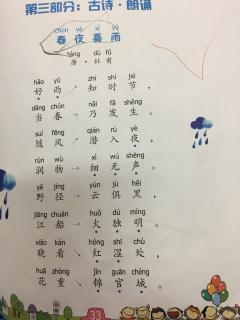 第三部分：古诗·朗诵
chūn yè xǐ yǔ
春夜喜雨
táng dù fǔ
唐·杜甫
hǎo yǔ zhī shí jié
好雨知时节，
dāng chūn nǎi fā shēng
当春乃发生。
suí fēng qián rù yè
随风潜入夜，
rùn wù xì wú shēng
润物细无声。
yě jìng yún jù hēi
野径云俱黑，
jiāng chuán huǒ dú míng
江船火独明。
xiǎo kàn hóng shī chù
晓看红湿处，
huā zhòng jǐn guān chéng
花重锦官城。
33